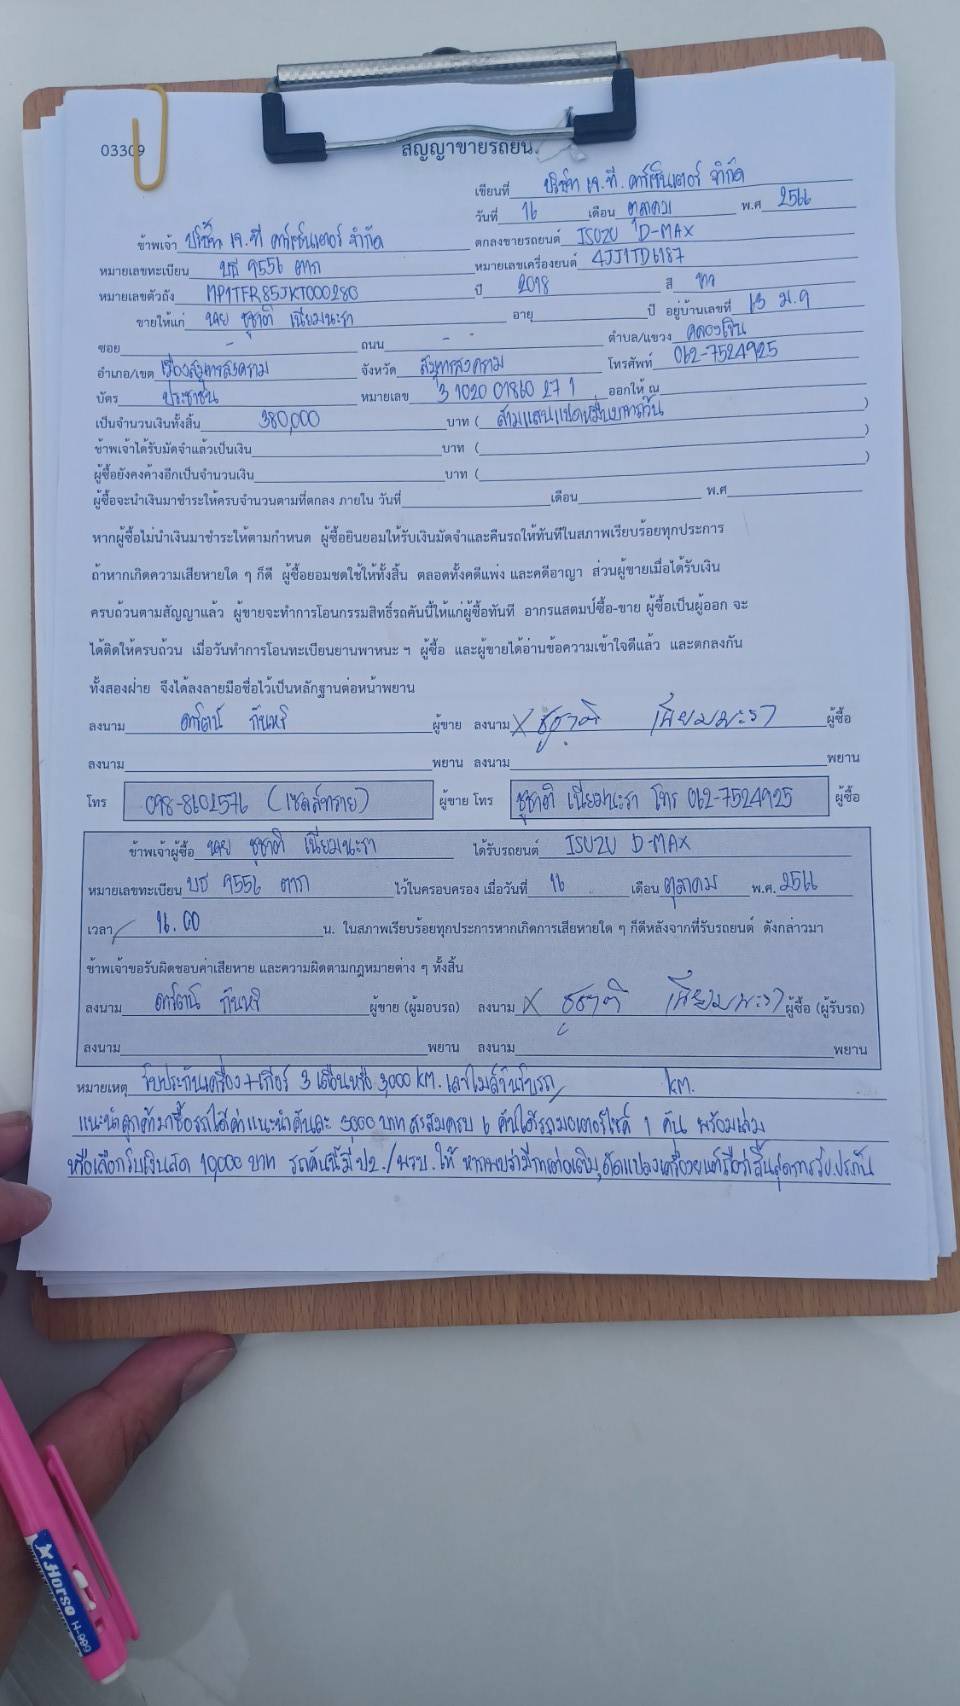 03309
สัญญาขายรถยน
เขียนที่ บริษัท เจ.ที. คาร์เซ็นเตอร์ จำกัด
วันที่ 16 เดือน ตุลาคม พ.ศ 2566
ข้าพเจ้า บริษัท เจ.ที คาร์เซ็นเตอร์ จำกัด ตกลงขายรถยนต์ ISUZU D-MAX
หมายเลขทะเบียน บธ 9556 ตาก หมายเลขเครื่องยนต์ 4JJ1TD6187
หมายเลขตัวถัง MP1TFR85JKT000280 ปี 2018 สี
ขายให้แก่ นาย ชูชาติ เนียมนะรา อายุ ปี อยู่บ้านเลขที่ 13 ม.9
ซอย - ถนน - - ตำบล/แขวง คลองเขิน
อำเภอ/เขต เมืองสมุทรสงคราม จังหวัด สมุทรสงคราม โทรศัพท์ 062-7524925
บัตร ประชาชน หมายเลข 3 1020 01860 27 1 ออกให้ ณ
เป็นจำนวนเงินทั้งสิ้น 380,000 บาท ( สามแสนแปดหมื่นบาทถ้วน )
ข้าพเจ้าได้รับมัดจำแล้วเป็นเงิน บาท ( )
ผู้ซื้อยังคงค้างอีกเป็นจำนวนเงิน บาท ( )
ผู้ซื้อจะนำเงินมาชำระให้ครบจำนวนตามที่ตกลง ภายใน วันที่ เดือน พ.ศ
หากผู้ซื้อไม่นำเงินมาชำระให้ตามกำหนด ผู้ซื้อยินยอมให้รับเงินมัดจำและคืนรถให้ทันทีในสภาพเรียบร้อยทุกประการ
ถ้าหากเกิดความเสียหายใด ๆ ก็ดี ผู้ซื้อยอมชดใช้ให้ทั้งสิ้น ตลอดทั้งคดีแพ่ง และคดีอาญา ส่วนผู้ขายเมื่อได้รับเงิน
ครบถ้วนตามสัญญาแล้ว ผู้ขายจะทำการโอนกรรมสิทธิ์รถคันนี้ให้แก่ผู้ซื้อทันที อากรแสตมป์ซื้อ-ขาย ผู้ซื้อเป็นผู้ออก จะ
ได้ติดให้ครบถ้วน เมื่อวันทำการโอนทะเบียนยานพาหนะ ฯ ผู้ซื้อ และผู้ขายได้อ่านข้อความเข้าใจดีแล้ว และตกลงกัน
ทั้งสองฝ่าย จึงได้ลงลายมือชื่อไว้เป็นหลักฐานต่อหน้าพยาน
ลงนาม ผู้ขาย ลงนาม X ชูชาติ เนียมนะรา ผู้ซื้อ
ลงนาม พยาน ลงนาม พยาน
โทร 098-8602576 (เซลล์ทราย) ผู้ขาย โทร ชูชาติ เนียมนะรา โทร 062-7524925 ผู้ซื้อ
ข้าพเจ้าผู้ซื้อ นาย ชูชาติ เนียมนะรา ได้รับรถยนต์ ISUZU D-MAX
หมายเลขทะเบียน บธ 9556 ตาก ไว้ในครอบครอง เมื่อวันที่ 16 เดือน ตุลาคม พ.ศ. 2566
เวลา 16.00 น. ในสภาพเรียบร้อยทุกประการหากเกิดการเสียหายใด ๆ ก็ดีหลังจากที่รับรถยนต์ ดังกล่าวมา
ข้าพเจ้าขอรับผิดชอบค่าเสียหาย และความผิดตามกฎหมายต่าง ๆ ทั้งสิ้น
ลงนาม ผู้ขาย (ผู้มอบรถ) ลงนาม X ชูชาติ เนียมนะรา ผู้ซื้อ (ผู้รับรถ)
ลงนาม พยาน ลงนาม พยาน
หมายเหตุ รับประกันเครื่อง+เกียร์ 3 เดือนหรือ 3,000 KM. เลขไมล์วันรับรถ KM.
แนะนำลูกค้ามาซื้อรถได้ค่าแนะนำคันละ 3000 บาท สะสมครบ 6 คันได้รถมอเตอร์ไซค์ 1 คัน พร้อม
หรือเลือกรับเงินสด 10,000 บาท รถคันนี้มี ป2./พรบ.ให้ หากพบว่ามีการต่อเติม,ดัดแปลงเครื่องยนต์ถือว่าสิ้นสุดการรับประกัน
Horse
H-999